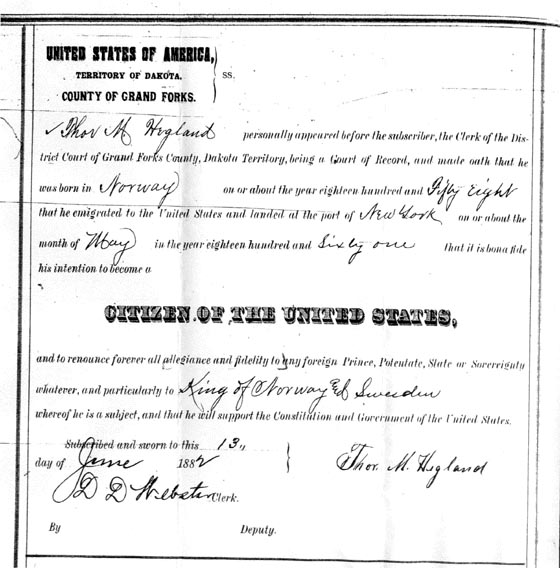 UNITED STATES OF AMERICA,
TERRITORY OF DAKOTA.
COUNTY OF GRAND FORKS.
ss.
Thor M Hegland personally appeared before the subscriber, the Clerk of the Dis-
trict Court of Grand Forks County, Dakota Territory, being a Court of Record, and made oath that he
was born in Norway on or about the year eighteen hundred and Fifty Eight
that he emigrated to the United States and landed at the port of New York on or about the
month of May in the year eighteen hundred and Sixty one that it is bona fide
his intention to become a
CITIZEN OF THE UNITED STATES,
and to renounce forever all allegiance and fidelity to any foreign Prince, Potentate, State or Sovereignty
whatever, and particularly to King of Norway & Sweden
whereof he is a subject, and that he will support the Constitution and Government of the United States.
Subscribed and sworn to this 13,
day of June 1882
Thor. M. Hegland
D D Webster Clerk.
By Deputy.